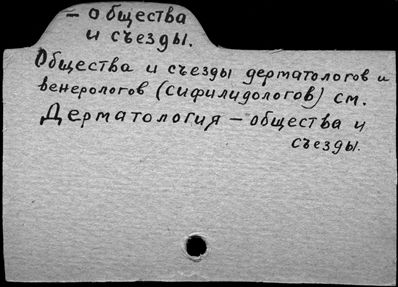 — общества
и съезды.
Общества и съезды дерматологов и
венерологов (сифилидологов) см.
Дерматология — общества и
съезды.